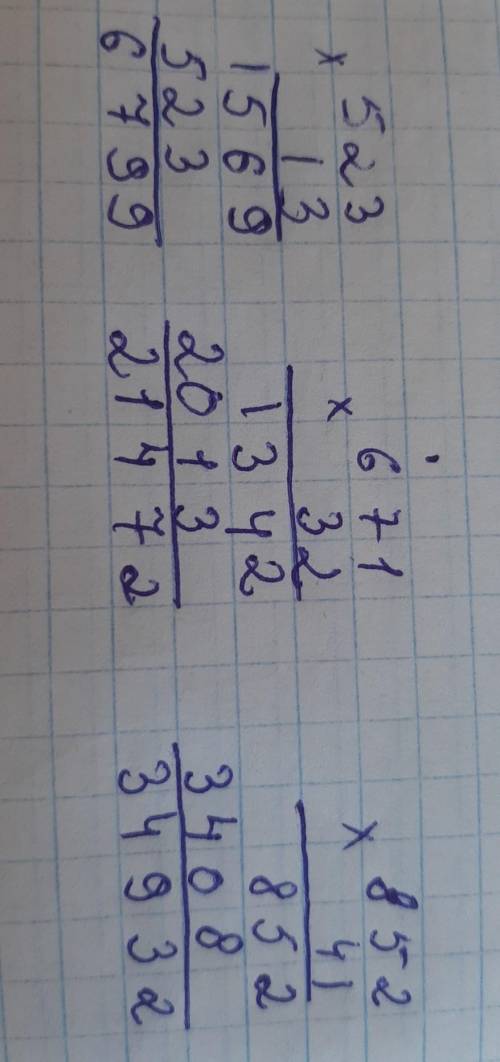 × 523
13
1569
523
6799
× 671
32
1342
2013
21472
× 852
41
852
3408
34932